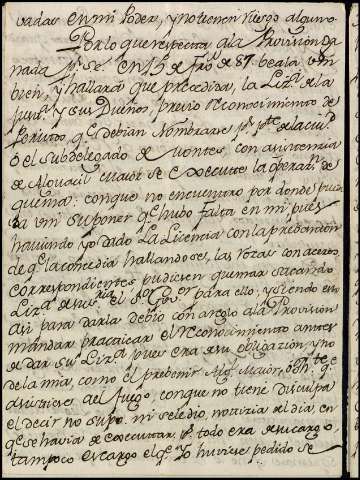 vadas en mi Poder, y no tienen riesgo alguno.
Por lo que respecta a la Provision Ga
nada pr. Se en 15 de de 87. beala vm
bien, y hallará que precedida, la Lizª. de la
Junta y sus Dueños, previo reconocimiento de
Peritos, qe. debian Nombrarse pr. pte. de la ciud.
ò el subdelegado de montes, con asistencia
de Alguacil mayor se execute la operazn. de
quema: conque no encuentro por donde pueda
vm suponer qe. hubo Falta en mi pues
haviendo yo dado La Licencia con la
de qe. la concedia hallandose, las rozas con
correspondientes, pudiesen quemar sacando
Lizª. de el Sor. Govor. para ello, y siendo esto
asi para darla debio con arreglo a la Provision
mandar practicar el reconocimiento antes
de dar su Lizª. pues era de su obligazion, y no
de la mia, como el prebenir Algl. Maior,
asistiese al fuego, conque no tiene disculpa
el decir no supo, ni se le dio, notizia del dia, en
qe. se havia de executar, pr. todo era de su cargo,
tampoco es cargo el qe. Yo huviese pedido se